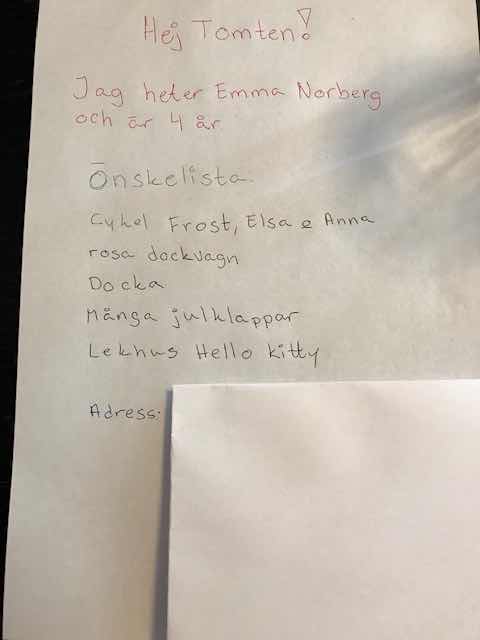 Hej Tomten!
Jag heter Emma Norberg
och är 4 år
Önskelista
Cykel Frost, Elsa o Anna
rosa dockvagn
Docka
Många julklappar
Lekhus Hello kitty
Adress: